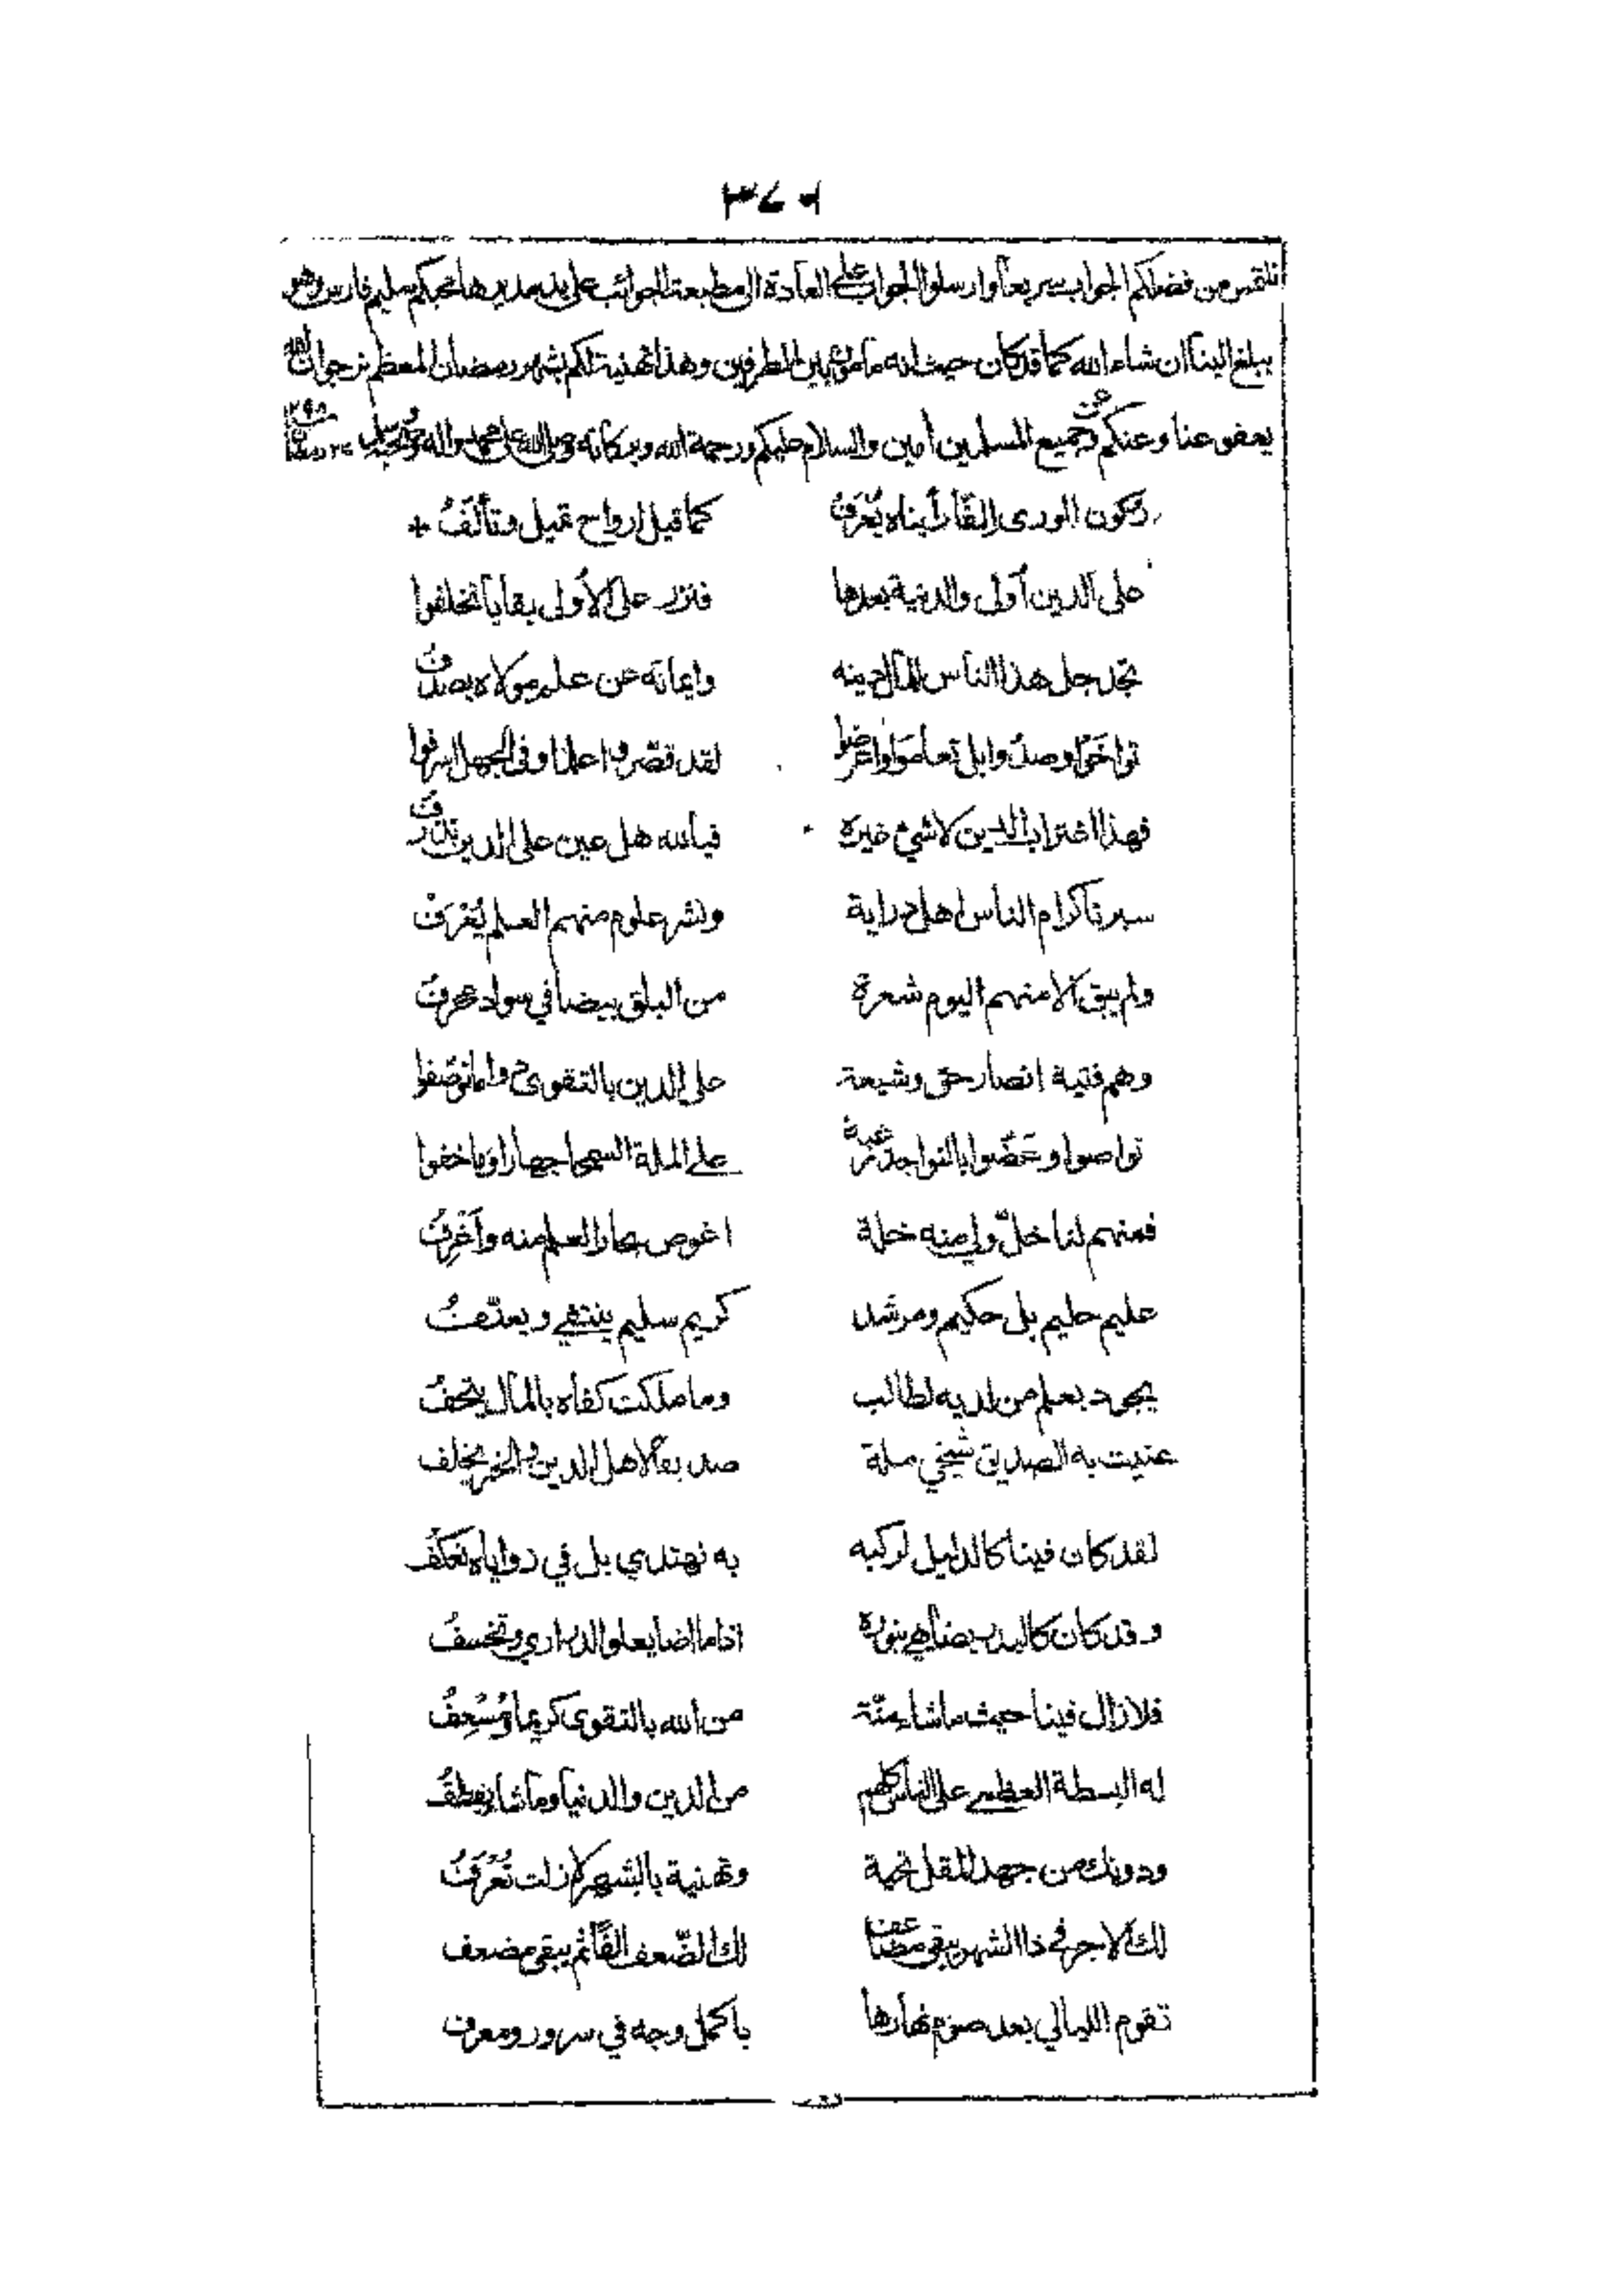 ٣٤٦
نلتمس من فضلكم الجواب سريعاً وارسلوا الجواب على العادة الى مطبعة الجوائب على يد مديرها محبكم سليم فارس وهو
يبلغ الينا ان شاء الله كما قد كان حيث انه مأمون بين الطرفين وهذا تهنية لكم بشهر رمضان المعظم نرجوا ان الله
يعفو عنا وعنكم وعن جميع المسلمين آمين والسلام عليكم ورحمة الله وبركاته وصلى الله على محمد واله وصحبه وسلم
ركون الورى القا رأيناه يُعْرَفُ كما قيل ارواح تميل وتألَفُ
على الدين أولى والدنية بعدها فنزر على الأولى بقايا تخلفوا
تجد جل هذا الناس للمال دينه وايمانه عن علم مولاه يصدفُ
تواخَوا وصدوا بل تعاموا واعرضوا لقد قصّروا علما وفى الجهل اسرفوا
فهذا اغتراب الدين لا شيء غيره فيالله هل عين على الدين تذرفُ
سبرنا كرام الناس اهل دراية ونشر علوم منهم العلم يُغْرَفُ
ولم يبق الا منهم اليوم شعرة من البلق بيضا في سواد تعرفُ
وهم فتية انصار حق وشيعة على الدين بالتقوى
تواصوا وعَضّوا بالنواجذ غيرة على الملة السمحا جهارا وما خفوا
فمنهم لنا خلّ ولي منه خلة اغوص بحار العلم منه وأغْرِفُ
عليم حليم بل حكيم ومرشد كريم سليم ينتقي ويعدّفُ
يجود بعلم من لديه لطالب وما ملكت كفاه بالمال يتحفُ
عنيت به الصديق شيخي ملة صديقا لاهل الدين والخير يخلف
لقد كان فينا كالدليل لركبه به نهتدي بل في زواياه نعكفُ
وقد كان كالبدر يضاهي بنوره اذا ما اضا يعلو الدراري وتخسفُ
فلا زال فينا حيث ما شاء منّة من الله بالتقوى كريما ومُسْعِفُ
له البسطة العظمى على الناس كلهم من الدين والدنيا وما شا يعطفُ
ودونك من جهد المقل تحية وتهنية بالشهر لا زلت تُعْرَفُ
لك الاجر في ذا الشهر يبقى مضاعفا لك الضّعف القائم يبقى مضعف
تقوم الليالي بعد صوم نهارها باكمل وجه في سرور ومعرف